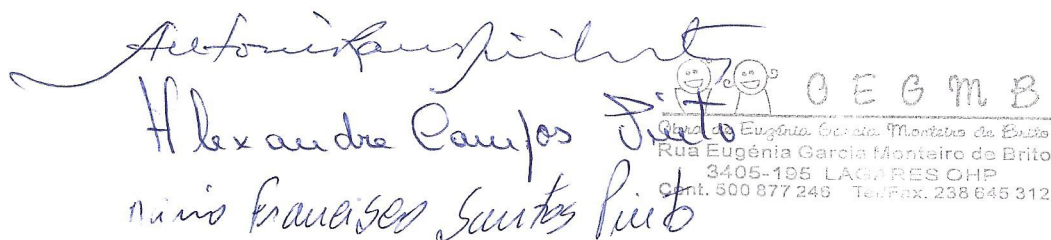 Alexandre Campos Pinto
Francisco Santos Pinto
O E G M B
Obra de Eugénia Garcia Monteiro de Brito
Rua Eugénia Garcia Monteiro de Brito
3405-195 LAGARES OHP
Cont. 500 877 246 Tel/Fax. 238 645 312